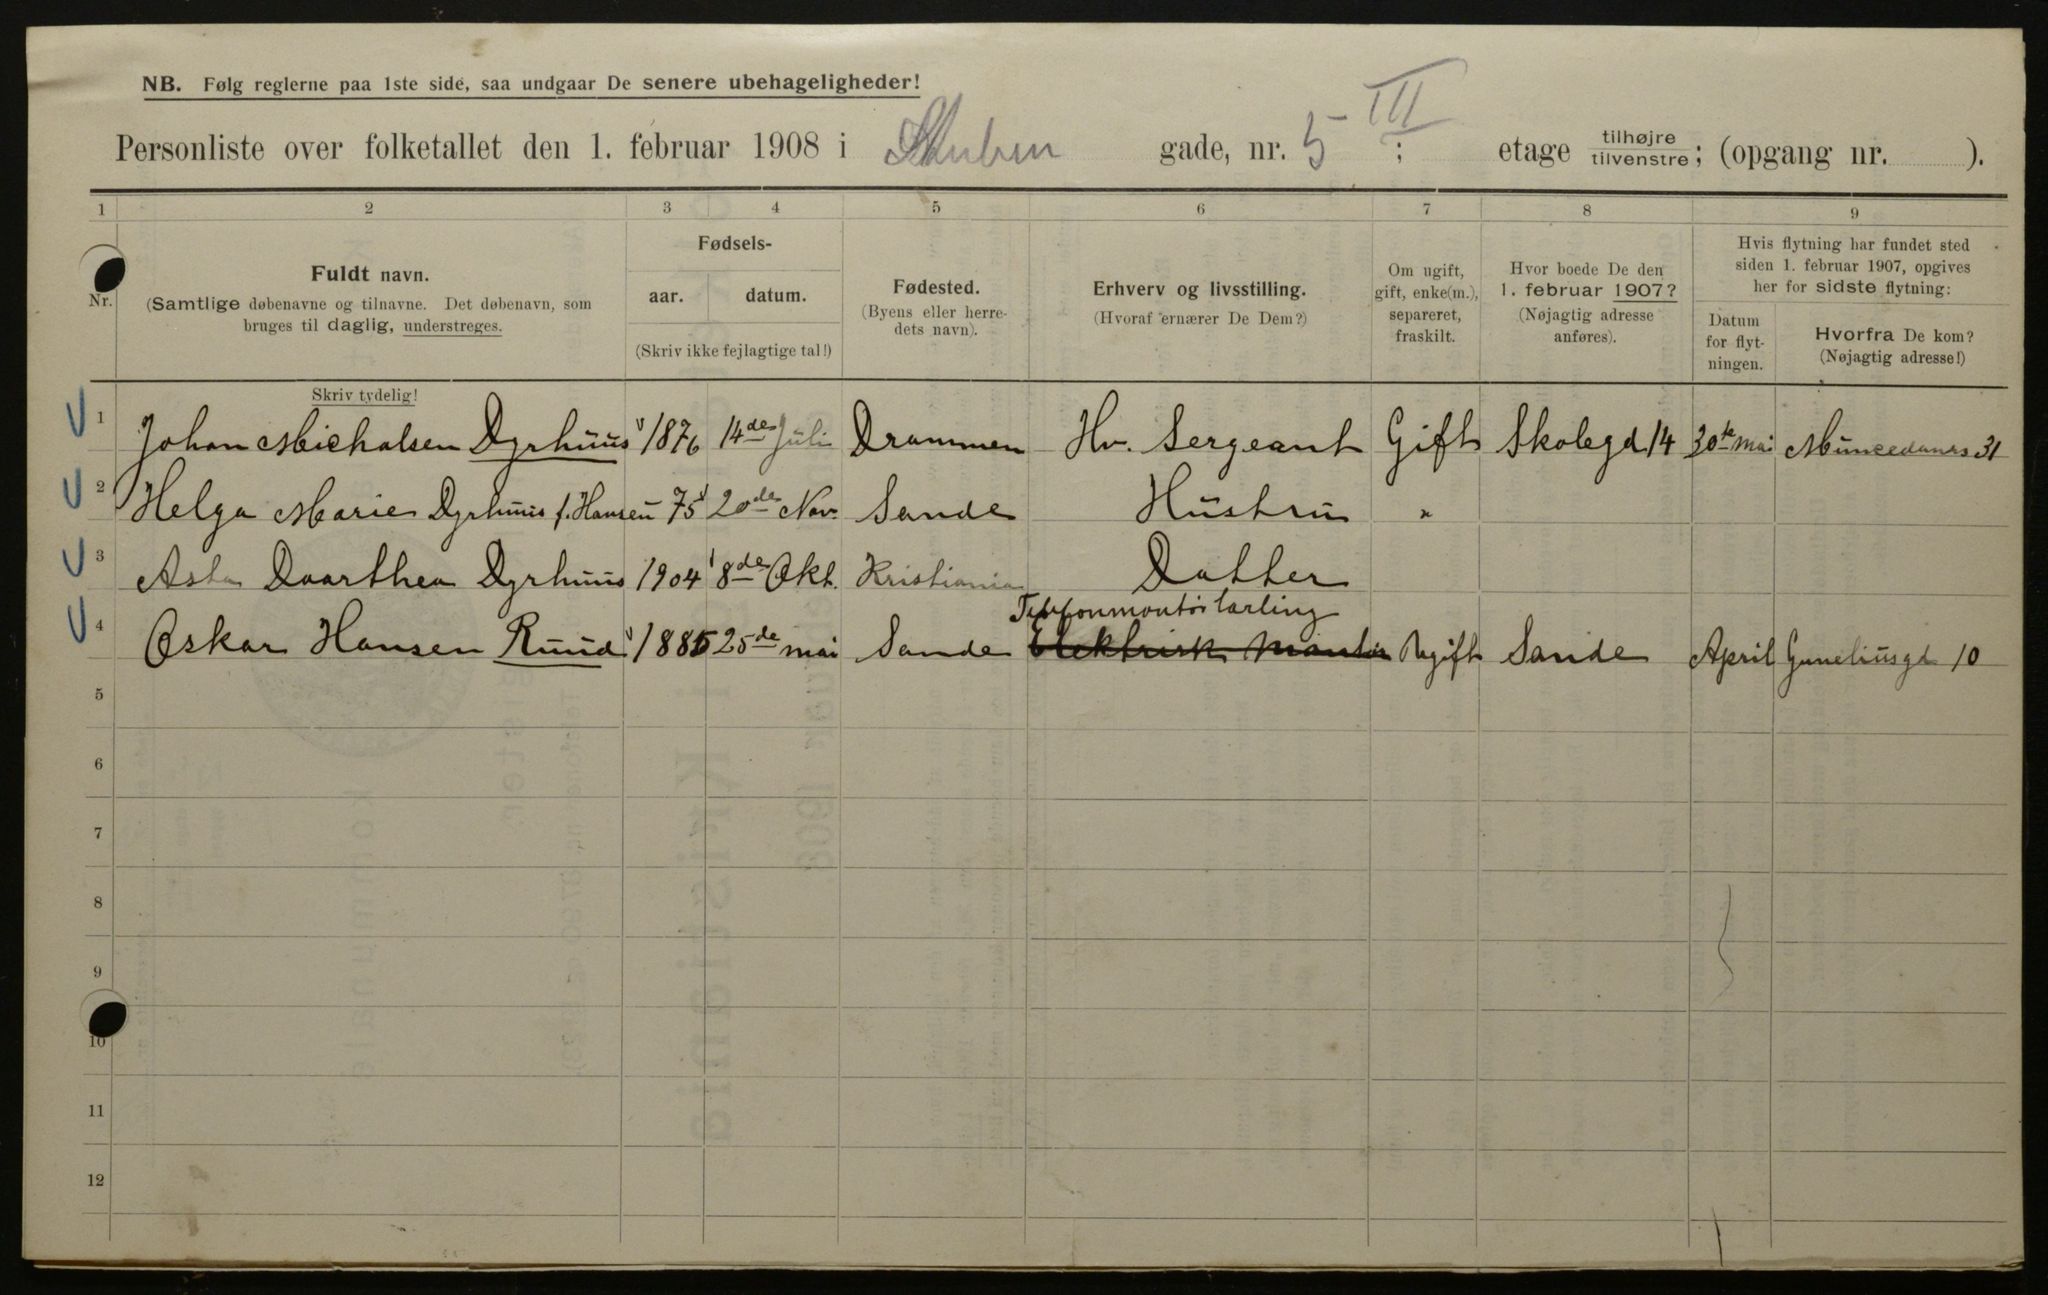 NB. Følg reglerne paa 1ste side, saa undgaar De senere ubehageligheder!
Personliste over folketallet den 1. februar 1908 i gade, nr. 5 III ; etage tilhøjre tilvenstre; (opgang nr. ).
1 2 3 4 5 6 7 8 9
Nr.
Fuldt navn.
(Samtlige døbenavne og tilnavne. Det døbenavn, som
bruges til daglig, understreges.
Skriv tydelig!
Fødsels-
aar. datum.
(Skriv ikke fejlagtige tal!)
Fødested.
(Byens eller herre-
dets navn).
Erhverv og livsstilling.
(Hvoraf ernærer De Dem?)
Om ugift,
gift, enke(m.),
separeret,
fraskilt.
Hvor boede De den
1. februar 1907?
(Nøjagtig adresse
anføres).
Hvis flytning har fundet sted
siden 1. februar 1907, opgives
her for sidste flytning:
Datum
for flyt-
ningen.
Hvorfra De kom?
(Nøjagtig adresse!)
1 Johan Micholsen Dyrhuus 1876 14de Juli Drammen Hv. Sergeant Gift Skolegd 14 30te mai 31
2 Helga Marie Dyrhuus f. Hansen 75 20de Nov. Sande Hustru "
3 Asta Daarthea Dyrhuus 1904 8de Okt. Kristiania Datter
Telefonmontørlærling
4 Oskar Hansen Ruud 1885 25de mai Sande Elektrisk Montør Ugift Sande April 10
5
6
7
8
9
10
11
12